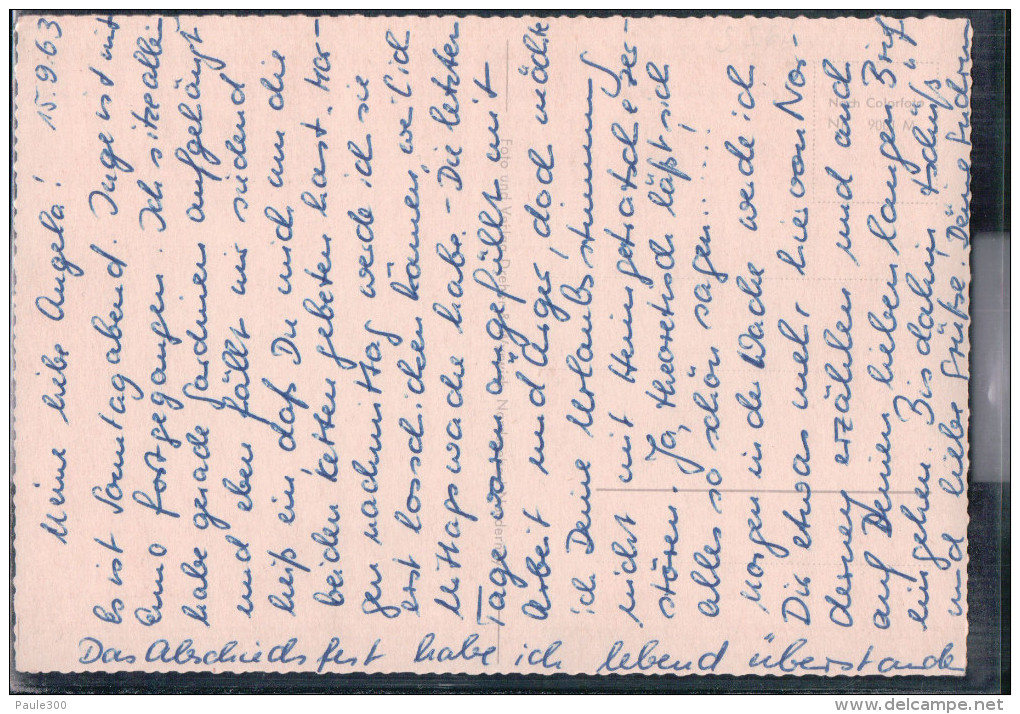 Meine liebe Angela! 15.9.63
Es ist Sonntagabend. Inge ist mit
fortgegangen. Ich sitze allein
habe gerade Gardinen aufgehängt
und eben fällt mir siedend
heiß ein, daß Du mich um die
beiden Ketten gebeten hast. Mor-
gen nachmittag werde ich sie
erst losschicken können, weil ich
Mittagswache habe. - Die letzten
Tage waren angefüllt mit
Arbeit und Ärger, doch möchte
ich Deine Urlaubsstimmung
nicht mit
stören. Ja, theoretisch läßt sich
alles so schön sagen....!
Morgen in der Wache werde ich
Dir etwas mehr hier von Nor-
derney erzählen und auch
auf Deinen lieben langen Brief
eingehen. Bis dahin tschüß
und liebe Grüße! Deine
Das Abschiedsfest habe ich lebend überstanden
Nach Colorfoto
Foto und Verlag
Paule300
delcampe.net